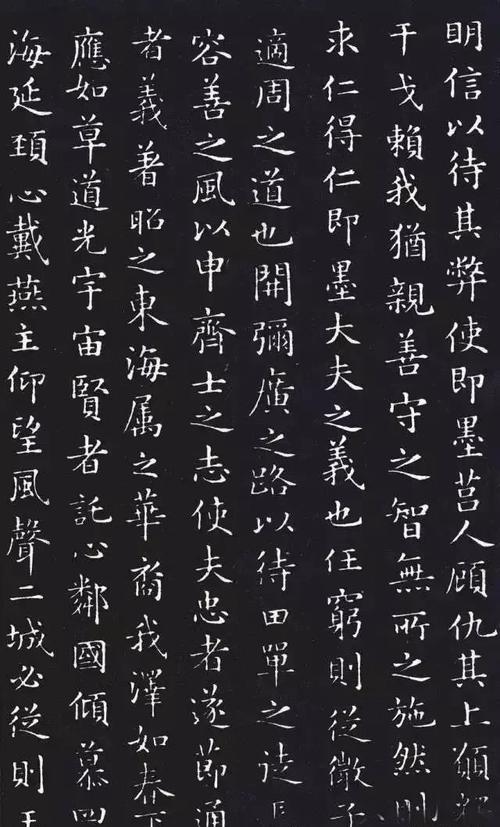 眀信以待其弊使即墨莒人顧仇其上願
干戈賴我猶親善守之智無所之施然則
求仁得仁即墨大夫之義也任窮則從微子
適周之道也開彌廣之路以待田單之徒長
容善之風以申齊士之志使夫忠者遂節通
者義著昭之東海属之華裔我澤如春下
應如草道光宇宙賢者託心鄰國傾慕四
海延頸心戴燕主仰望風聲二城必從則王